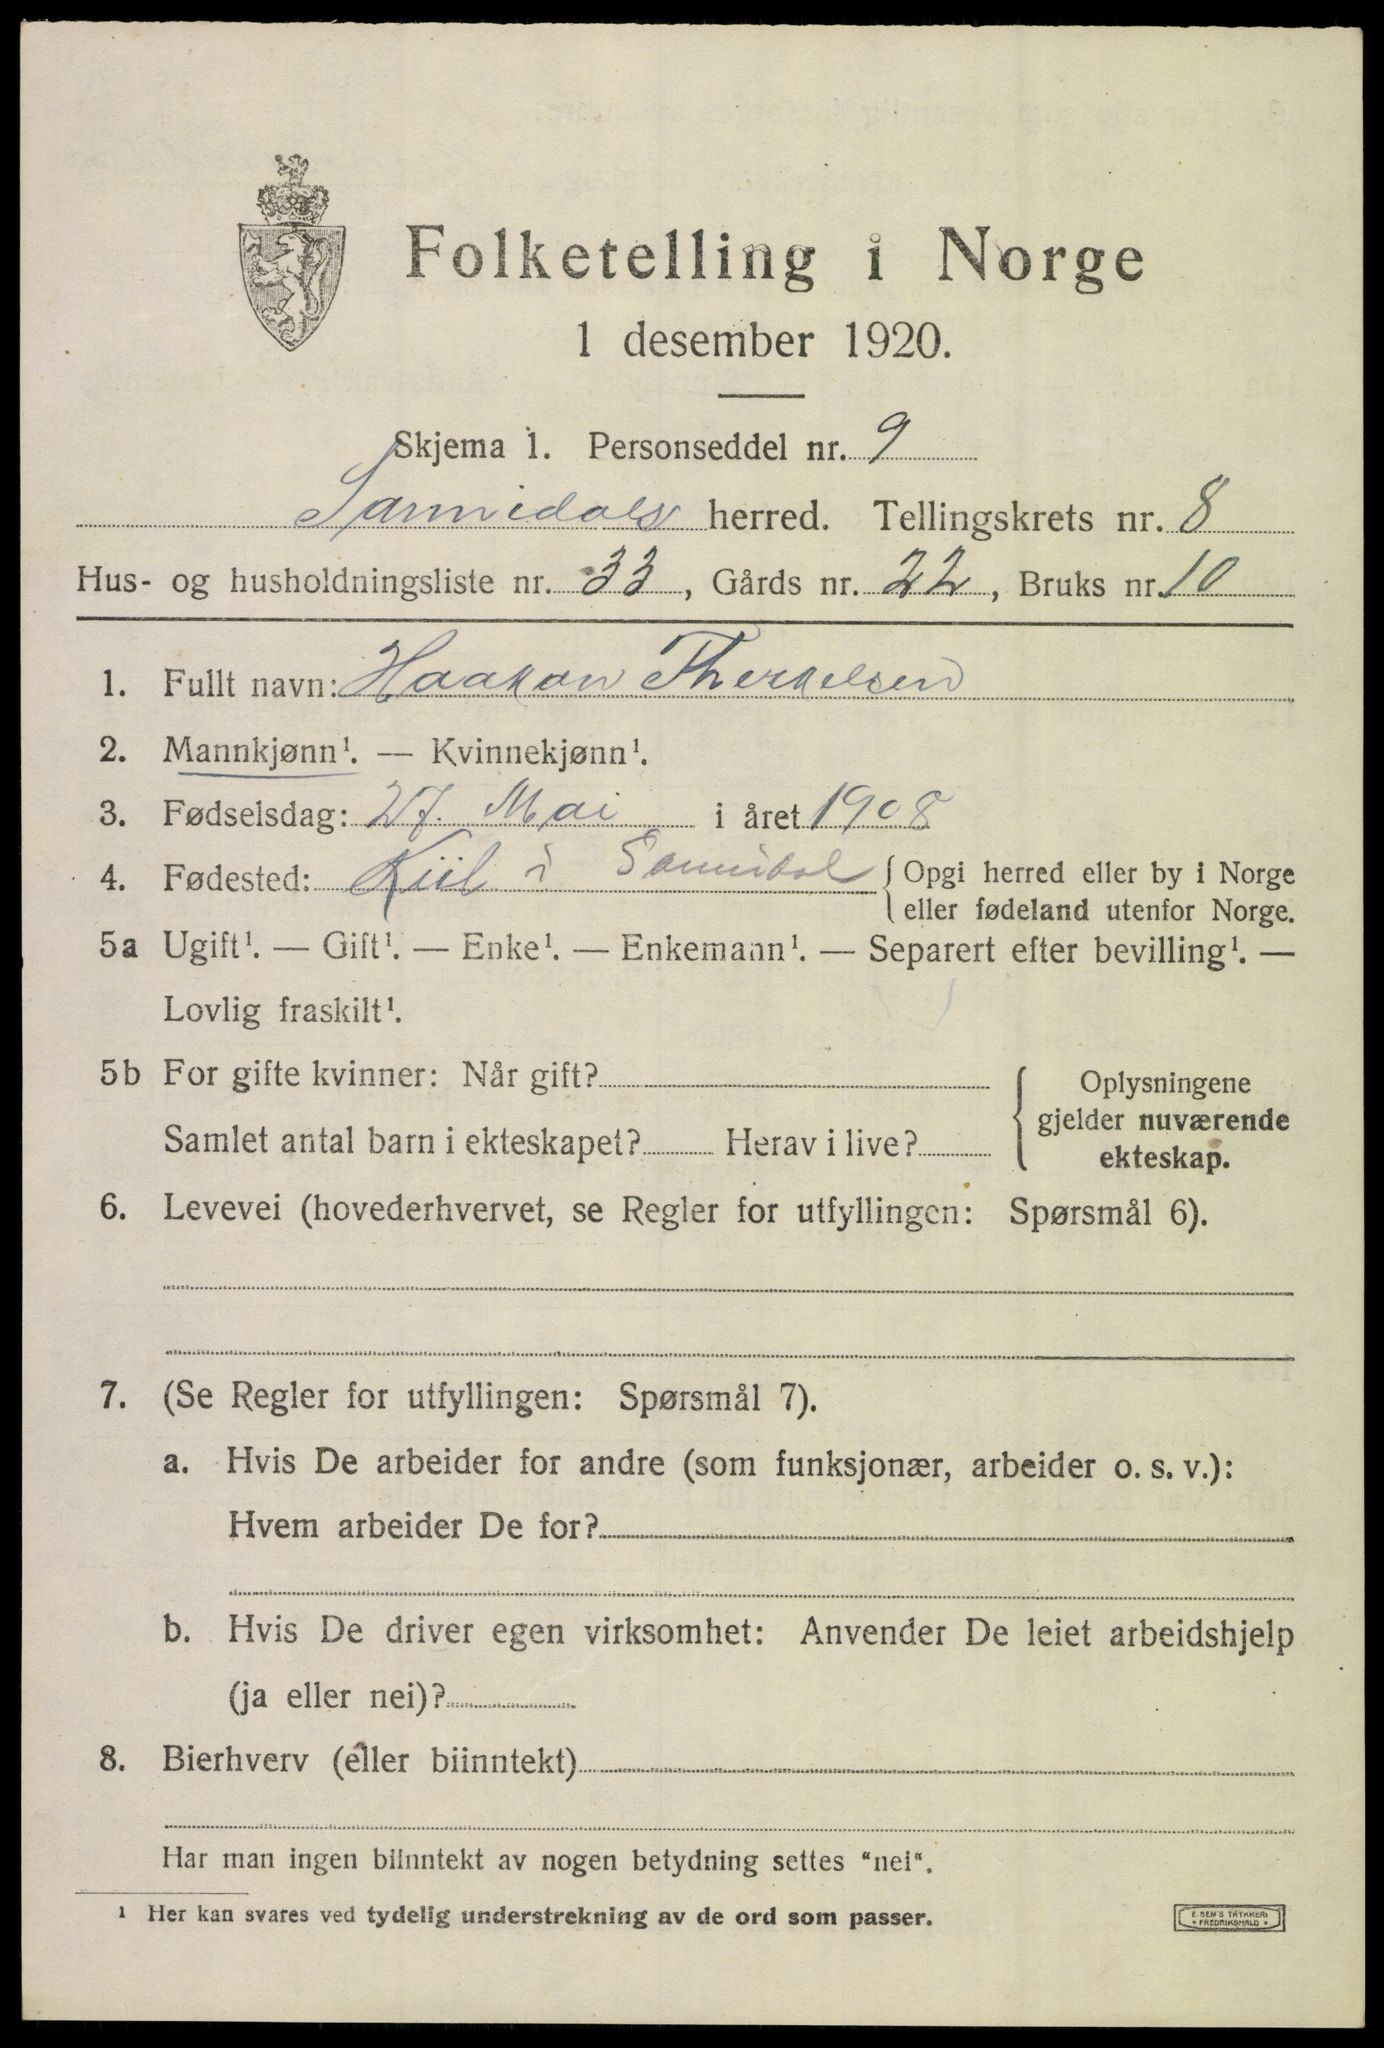 Folketelling i Norge
1 desember 1920.
Skjema 1. Personseddel nr. 9
Sannidals herred. Tellingskrets nr. 8
Hus- og husholdningsliste nr. 33, Gårds nr. 22, Bruks nr. 10
1. Fullt navn: Haakon Therkelsen
2. Mannkjønn¹. — Kvinnekjønn¹.
3. Fødselsdag: 27. Mai i året 1908
4. Fødested: Kiil i Sannidal { Opgi herred eller by i Norge
eller fødeland utenfor Norge.
5a Ugift¹. — Gift¹. — Enke¹. — Enkemann¹. — Separert efter bevilling¹. —
Lovlig fraskilt¹.
5b For gifte kvinner: Når gift?
Samlet antal barn i ekteskapet? Herav i live?
Oplysningene
gjelder nuværende
ekteskap.
6. Levevei (hovederhvervet, se Regler for utfyllingen: Spørsmål 6).
7. (Se Regler for utfyllingen: Spørsmål 7).
a. Hvis De arbeider for andre (som funksjonær, arbeider o. s. v.):
Hvem arbeider De for?
b. Hvis De driver egen virksomhet: Anvender De leiet arbeidshjelp
(ja eller nei)?
8. Bierhverv (eller biinntekt)
Har man ingen biinntekt av nogen betydning settes "nei".
¹ Her kan svares ved tydelig understrekning av de ord som passer.
E. SEM'S TRYKKERI
* FREDRIKSHALD *